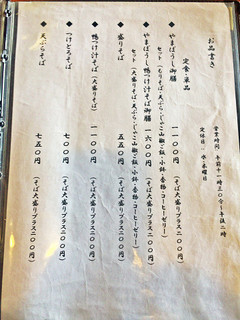 お品書き
営業時間 午前十一時三〇分〜午後二時
定休日 水・木曜日
定食・単品
◆ やまぼうし御膳 一一〇〇円 (そば大盛りプラス二〇〇円)
セット(もりそば・天ぷら・じゃこ山椒ご飯・小鉢・香物・コーヒーゼリー)
◆ やまぼうし鴨つけ汁そば御膳 一六〇〇円 (そば大盛りプラス二〇〇円)
セット(大盛りそば・天ぷら・じゃこ山椒ご飯・小鉢・香物・コーヒーゼリー)
◆ 盛りそば 五五〇円 (そば大盛りプラス二〇〇円)
◆ 鴨つけ汁そば (大盛りそば) 一一〇〇円
◆ つけとろそば 七〇〇円 (そば大盛りプラス二〇〇円)
◆ 天ぷらそば 七五〇円 (そば大盛りプラス二〇〇円)